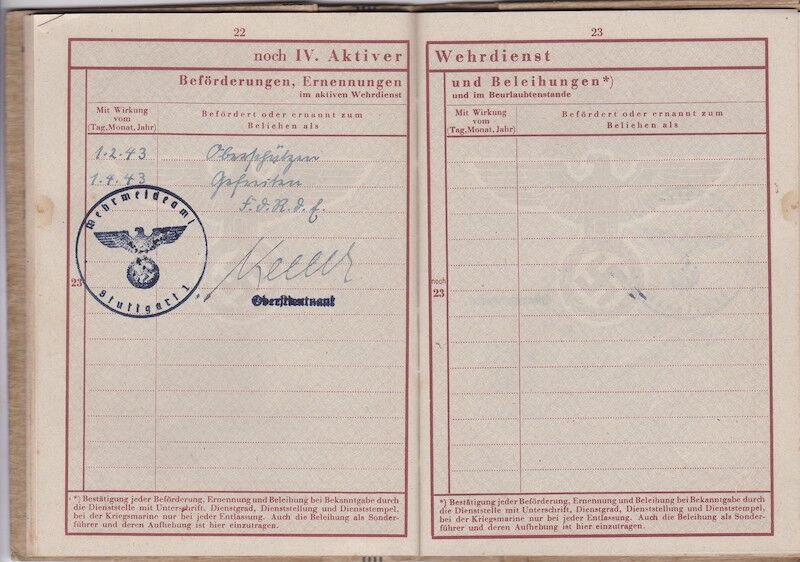 22
noch IV. Aktiver
Beförderungen, Ernennungen
im aktiven Wehrdienst
Mit Wirkung
vom
(Tag, Monat, Jahr)
Befördert oder ernannt zum
Beliehen als
1.2.43 Oberschützen
1.4.43 Gefreiten
F.d.R.d.E.
Wehrmeldeamt
Stuttgart 1
23
Oberstleutnant
*) Bestätigung jeder Beförderung, Ernennung und Beleihung bei Bekanntgabe durch
die Dienststelle mit Unterschrift, Dienstgrad, Dienststellung und Dienststempel,
bei der Kriegsmarine nur bei jeder Entlassung. Auch die Beleihung als Sonder-
führer und deren Aufhebung ist hier einzutragen.
23
Wehrdienst
und Beleihungen*)
und im Beurlaubtenstande
Mit Wirkung
vom
(Tag, Monat, Jahr)
Befördert oder ernannt zum
Beliehen als
noch
23
*) Bestätigung jeder Beförderung, Ernennung und Beleihung bei Bekanntgabe durch
die Dienststelle mit Unterschrift, Dienstgrad, Dienststellung und Dienststempel,
bei der Kriegsmarine nur bei jeder Entlassung. Auch die Beleihung als Sonder-
führer und deren Aufhebung ist hier einzutragen.